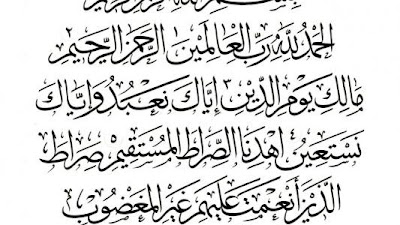 الحمد لله رب العالمين ١ الرحمن الرحيم ٢
مالك يوم الدين ٣ إياك نعبد وإياك
نستعين ٤ اهدنا الصراط المستقيم ٥ صراط
الذين أنعمت عليهم غير المغضوب